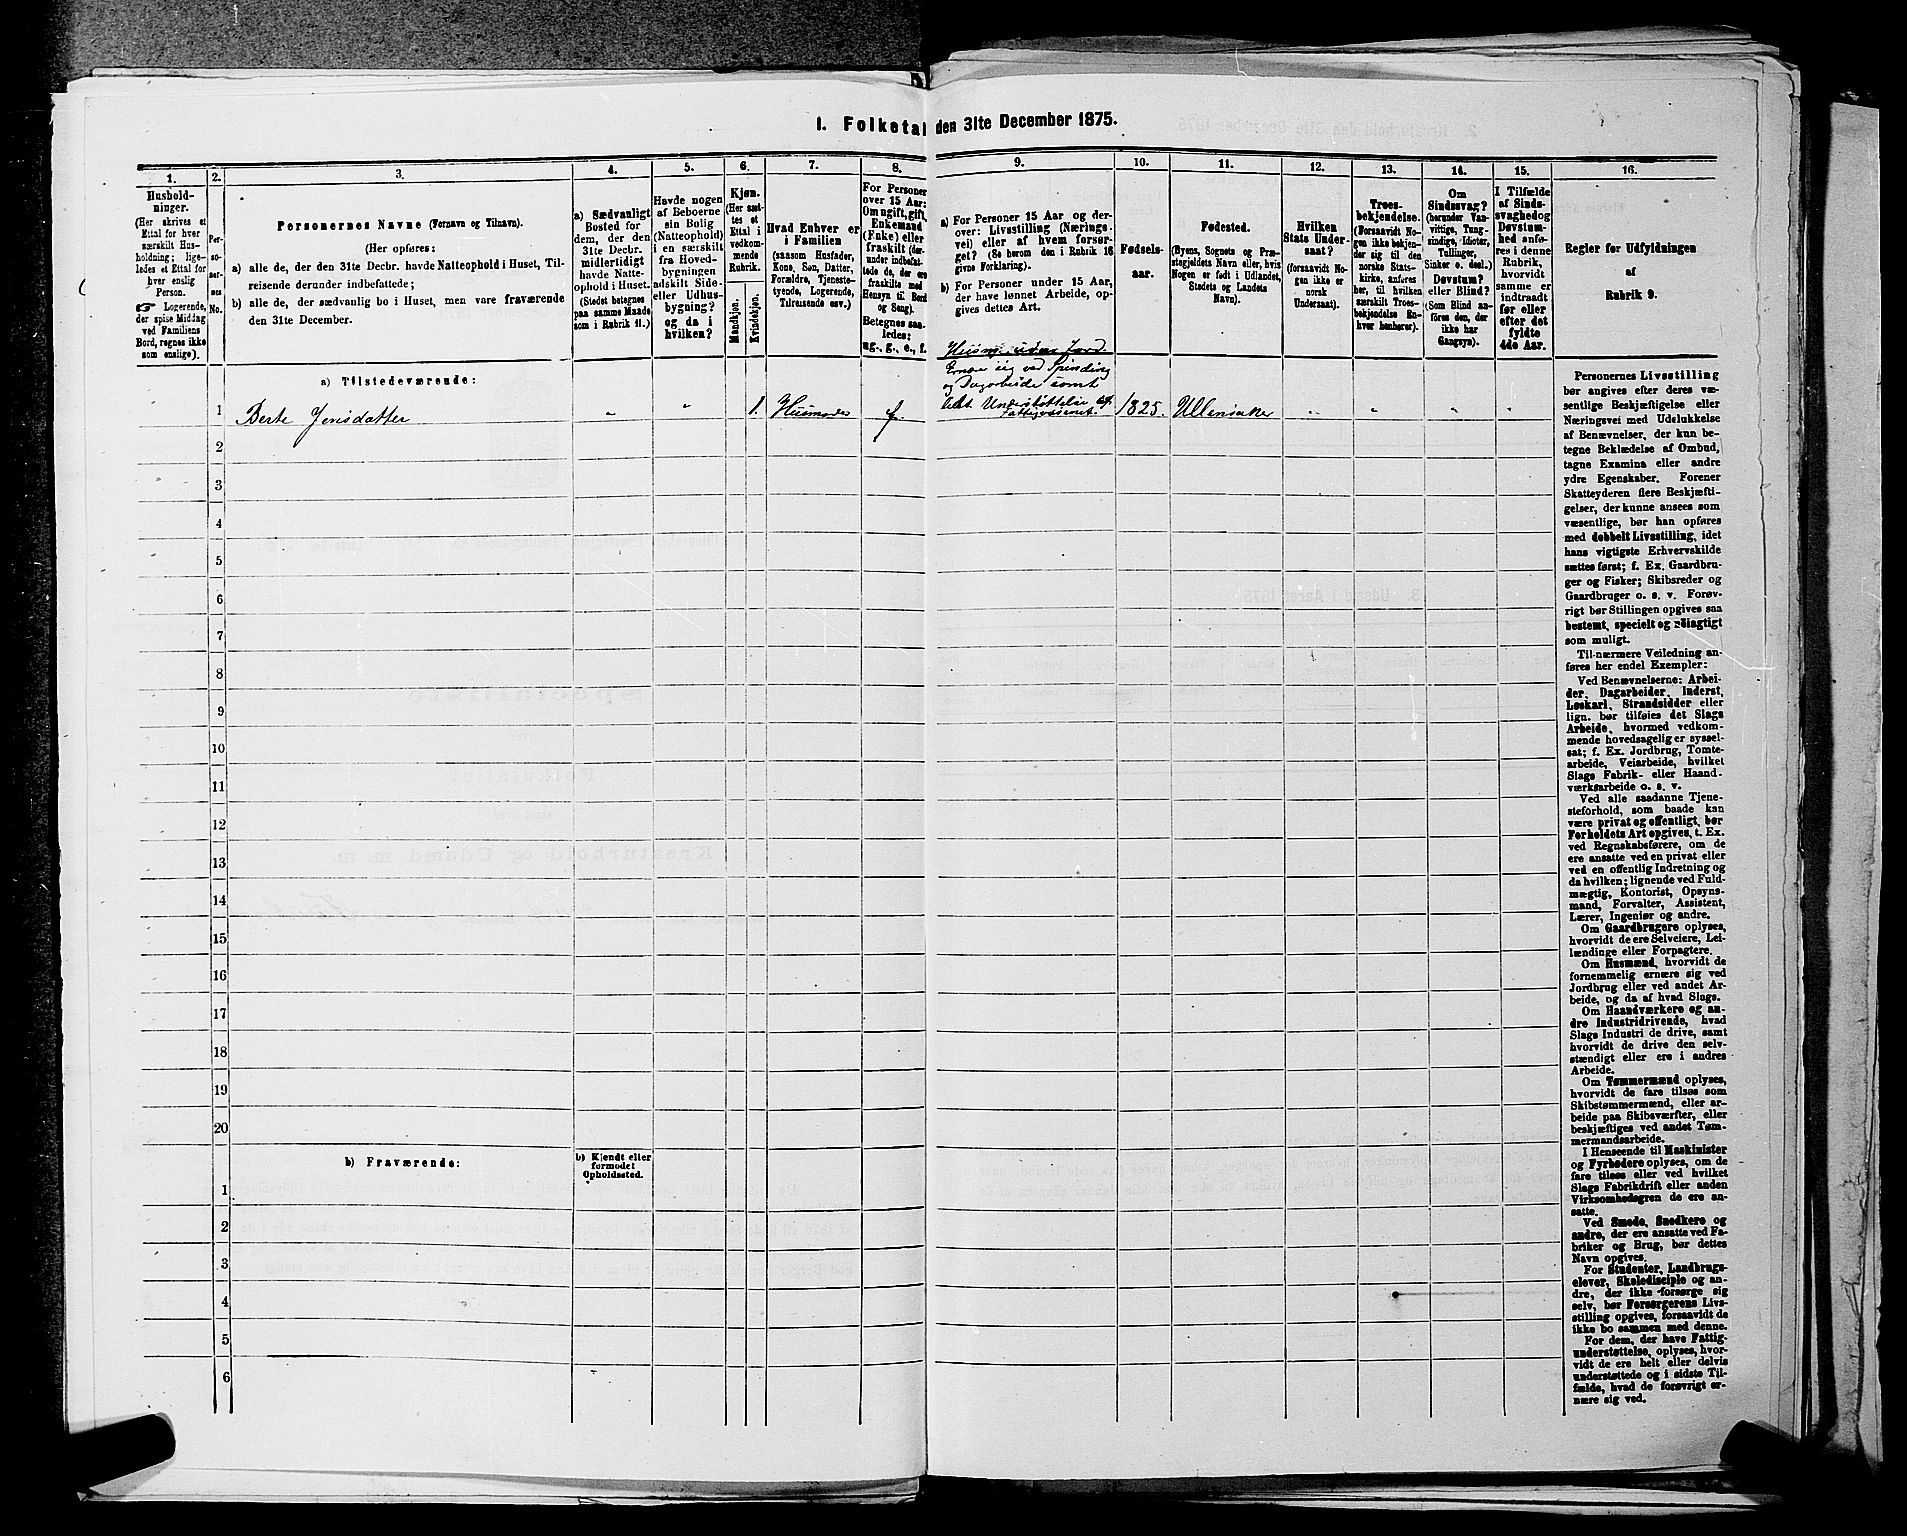 1. Folketal den 31te December 1875.
1.
2.
3.
4.
5.
6.
7.
8.
9.
10.
11.
12.
13.
14.
15.
16.
Hushold-
ninger.
(Her skrives et
Ettal for hver
særskilt Hus-
holdning; lige-
ledes et Ettal for
hver enslig
Person.
Logerende,
der spise Middag
ved Familiens
Bord, regnes ikke
som enslige).
Per-
so-
ner-
nes
No.
Personernes Navne (Fornavn og Tilnavn).
(Her opføres:
a) alle de, der den 31te Decbr. havde Natteophold i Huset, Til-
reisende derunder indbefattede;
b) alle de, der sædvanlig bo i Huset, men vare fraværende
den 31te December.
a) Sædvanligt
Bosted for
dem, der den
31te Decbr.
midlertidigt
havde Natte-
ophold i Huset.
(Stedet betegnes
paa samme Maade
som i Rubrik 11.)
Havde nogen
af Beboerne
sin Bolig
(Natteophold)
i en særskilt
fra Hoved-
bygningen
adskilt Side-
eller Udhus-
bygning?
og da i
hvilken?
Kjøn.
(Her sæt-
tes et
Ettal i
vedkom-
mende
Rubrik.
Mandkjøn.
Kvindekjøn.
Hvad Enhver er
i Familien
(saasom Husfader,
Kone, Søn, Datter,
Forældre, Tjeneste-
tyende, Logerende,
Tilreisende osv.)
For Personer
over 15 Aar:
Om ugift, gift,
Enkemand
(Enke) eller
fraskilt (der-
under indbefat-
tede de, der ere
fraskilte med
Hensyn til Bord
og Seng).
Betegnes saa-
ledes:
ug., g., e., f.
a) For Personer 15 Aar og der-
over: Livsstilling (Nærings-
vei) eller af hvem forsør-
get? (Se herom den i Rubrik 16
givne Forklaring).
b) For Personer under 15 Aar,
der have lønnet Arbeide, op-
gives dettes Art.
Fødsels-
aar.
Fødested.
(Byens, Sognets og Præ-
stegjeldets Navn eller, hvis
Nogen er født i Udlandet,
Stedets og Landets
Navn).
Hvilken
Stats Under-
saat?
(forsaavidt No-
gen ikke er
norsk
Undersaat).
Troes-
bekjendelse.
(Forsaavidt No-
gen ikke bekjen-
der sig til den
norske Stats-
kirke, anføres
her, til hvilken
særskilt Troes-
bekjendelse En-
hver henhører).
Om
Sindssvag?
(herunder Van-
vittige, Tung-
sindige, Idioter,
Tullinger,
Sinker o. desl.)
Døvstum?
eller Blind?
(Som Blind an-
føres den, der
ikke har
Gangsyn).
I Tilfælde
af Sinds-
svaghed og
Døvstum-
hed anfø-
res i denne
Rubrik,
hvorvidt
samme er
indtraadt
før eller
efter det
fyldte
4de Aar.
Regler for Udfyldningen
af
Rubrik 9.
a) Tilstedeværende:
Husm. uden Jord
Ernær sig ved Spinding
og Dagarbeide samt
Understøttelse af
Fattigvæsenet.
1 Berte Jensdatter " " 1. Husmoder f 1825. Ullensaker " " " "
2
3
4
5
6
7
8
9
10
11
12
13
14
15
16
17
18
19
20
b) Fraværende:
b) Kjendt eller
formodet
Opholdssted.
1
2
3
4
5
6
Personernes Livsstilling
bør angives efter deres væ-
sentlige Beskjæftigelse eller
Næringsvei med Udelukkelse
af Benævnelser, der kun be-
tegne Beklædelse af Ombud,
tagne Examina eller andre
ydre Egenskaber. Forener
Skatteyderen flere Beskjæfti-
gelser, der kunne ansees som
væsentlige, bør han opføres
med dobbelt Livsstilling, idet
hans vigtigste Erhvervskilde
sættes først; f. Ex. Gaardbru-
ger og Fisker; Skibsreder og
Gaardbruger o. s. v. Forøv-
rigt bør Stillingen opgives saa
bestemt, specielt og nøiagtigt
som muligt.
Til nærmere Veiledning an-
føres her endel Exempler:
Ved Benævnelserne: Arbei-
der, Dagarbeider, Inderst,
Løskarl, Strandsidder eller
lign. bør tilføies det Slags
Arbeide, hvormed vedkom-
mende hovedsagelig er syssel-
sat; f. Ex. Jordbrug, Tomte-
arbeide, Veiarbeide, hvilket
Slags Fabrik- eller Haand-
værksarbeide o. s. v.
Ved alle saadanne Tjene-
steforhold, som baade kan
være privat og offentligt, bør
Forholdets Art opgives, t. Ex.
ved Regnskabsførere, om de
ere ansatte ved en privat eller
ved en offentlig Indretning og
da hvilken; lignende ved Fuld-
mægtig, Kontorist, Opsyns-
mand, Forvalter, Assistent,
Lærer, Ingeniør og andre.
Om Gaardbrugere oplyses,
hvorvidt de ere Selveiere, Lei-
lændinge eller Forpagtere.
Om Husmænd, hvorvidt de
fornemmelig ernære sig ved
Jordbrug eller ved andet Ar-
beide, og da af hvad Slags.
Om Haandværkere og an-
dre Industridrivende, hvad
Slags Industri de drive, samt
hvorvidt de drive den selv-
stændigt eller ere i andres
Arbeide.
Om Tømmermænd oplyses,
hvorvidt de fare tilsøs som
Skibstømmermænd, eller ar-
beide paa Skibsværfter, eller
beskjæftiges ved andet Tøm-
mermandsarbeide.
I Henseende til Maskinister
og Fyrbødere oplyses, om de
fare tilsøs eller ved hvilket
Slags Fabrikdrift eller anden
Virksomhedsgren de ere an-
satte.
Ved Smede, Snedkere og
andre, der ere ansatte ved Fa-
briker og Brug, bør dettes
Navn opgives.
For Studenter, Landbrugs-
elever, Skoledisciple og an-
dre, der ikke forsørge sig
selv, bør Forsørgerens Livs-
stilling opgives, forsaavidt de
ikke bo sammen med denne.
For dem, der have Fattig-
understøttelse, oplyses, hvor-
vidt de ere helt eller delvis
understøttede og i sidste Til-
fælde, hvad de forøvrigt er-
nære sig ved.